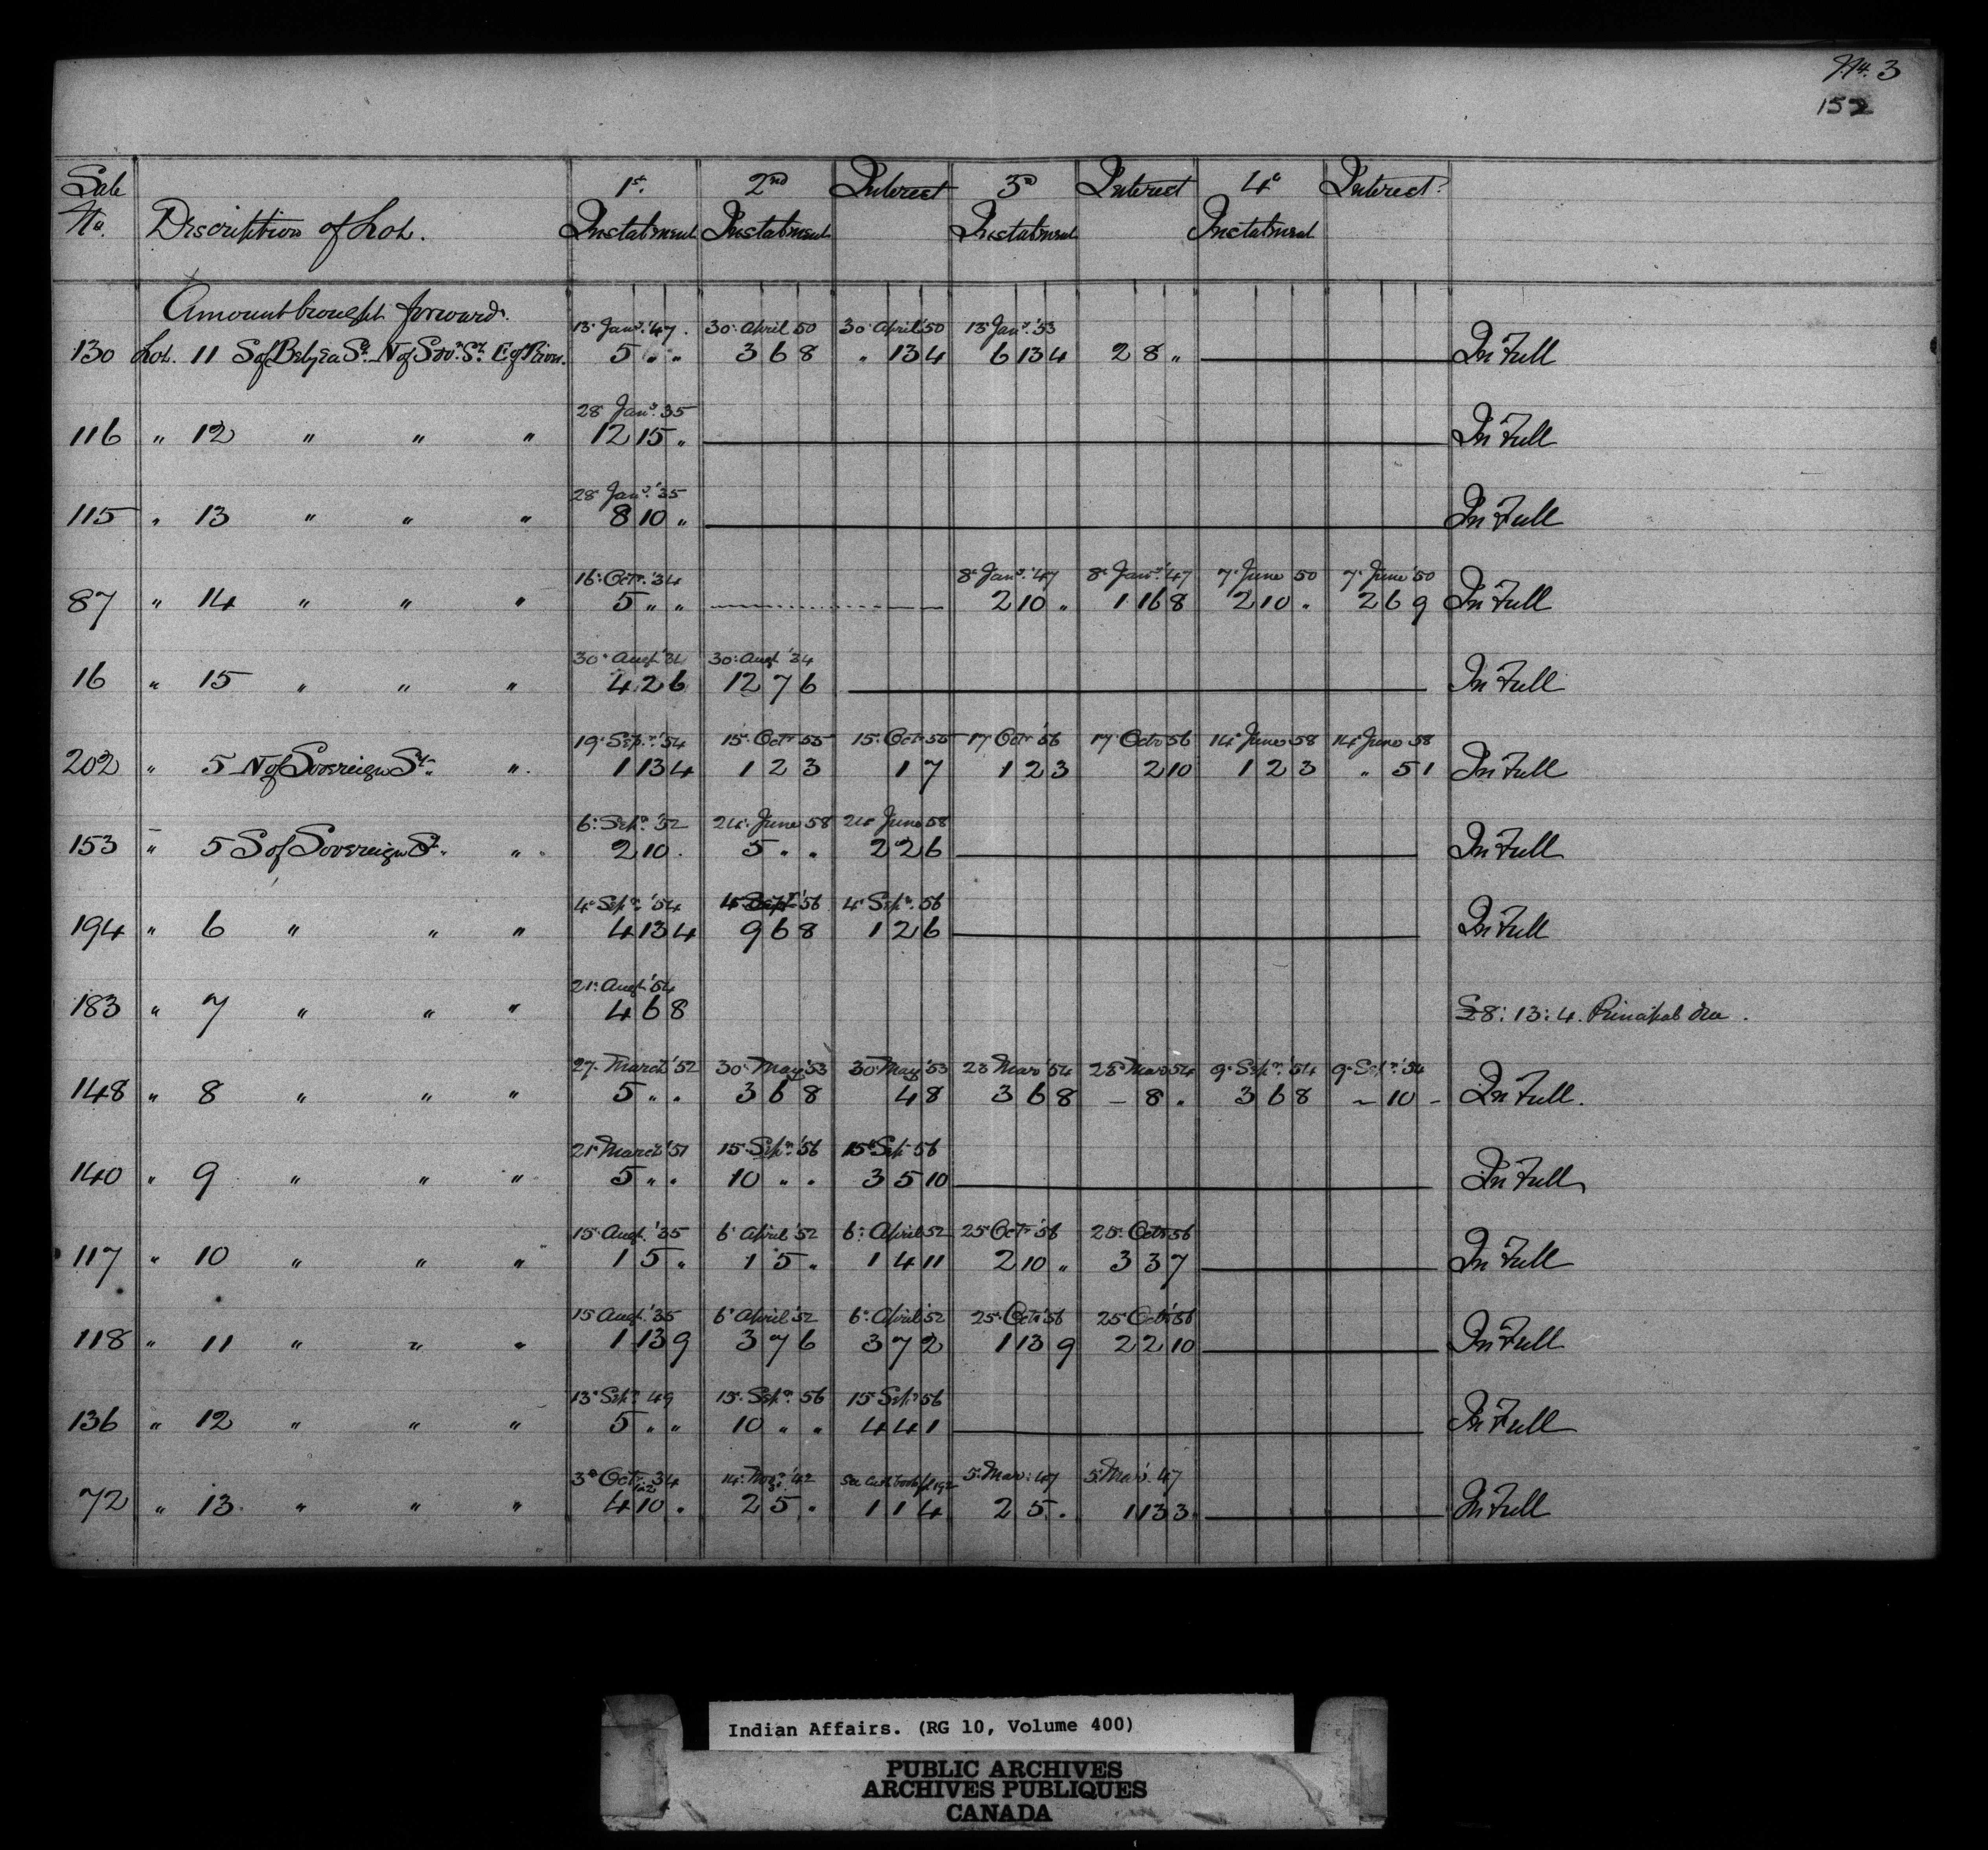 No. 3
152
Sale 1st. 2nd Interest 3d Interest 4th Interest
No. Description of Lot. Instalment Instalment Instalment Instalment
Amount brought forward.
13 Jany. '47. 30. April 50 30. April '50 13 Jany. '53
130 Lot. 11 S of Belyea St. N of Sov.n St. E of River. 5 " " 3 6 8 " 13 4 6 13 4 2 8 " In Full
28 Jany. 35
116 " 12 " " " 12 15 " In Full
28 Jany. '35
115 " 13 " " " 8 10 " In Full
16. Octr. '34 8. Jany. '47 8. Jany. '47 7. June 50 7. June '50
87 " 14 " " " 5 " " 2 10 " 1 16 8 2 10 " 2 6 9 In Full
30. Augt. '34 30. Augt. '34
16 " 15 " " " 4 2 6 12 7 6 In Full
19. Sepr. '54 15. Octr 55 15. Octr 55 17 Octr '56 17. Octr 56 14 June 58 14 June 58
202 " 5 N of Sovereign St. " 1 13 4 1 2 3 1 7 1 2 3 2 10 1 2 3 " 5 1 In Full
6. Sepr. '52 24. June 58 24 June 58
153 " 5 S of Sovereign St. " 2 10 . 5 " " 2 2 6 In Full
4. Sepr. '54 4 Sept '56 4. Sepr. 56
194 " 6 " " " 4 13 4 9 6 8 1 2 6 In Full
21. Augt. '54
183 " 7 " " " 4 6 8 £8: 13: 4. Principal due.
27. March '52 30. May '53 30 May '53 23 Mar '54 28 Mar 54 9. Sepr. '54 9. Sepr. '54
148 " 8 " " " 5 " " 3 6 8 4 8 3 6 8 – 8 " 3 6 8 – 10 – In Full.
21 March '51 15. Sepr. '56 15 Sep 56
140 " 9 " " " 5 " " 10 " " 3 5 10 In Full
15. Augt. '35 6. April '52 6. April 52 25 Octr '56 25. Octr 56
117 " 10 " " " 1 5 " 1 5 " 1 4 11 2 10 " 3 3 7 In Full
15 Augt. '35 6 April '52 6. April '52 25. Octr '56 25 Octr '56
118 " 11 " " " 1 13 9 3 7 6 3 7 2 1 13 9 2 2 10 In Full
13. Sepr. 49 15. Sepr. 56 15 Sepr 56
136 " 12 " " " 5 " " 10 " " 4 4 1 In Full
3d Octr. 34 14. Nov. '42 See Cash book 5. Mar: 47 5. Mar. 47
72 " 13. " " " 4 10 . 2 5 " 1 1 4 2 5 . 1 13 3 In Full
Indian Affairs. (RG 10, Volume 400)
PUBLIC ARCHIVES
ARCHIVES PUBLIQUES
CANADA